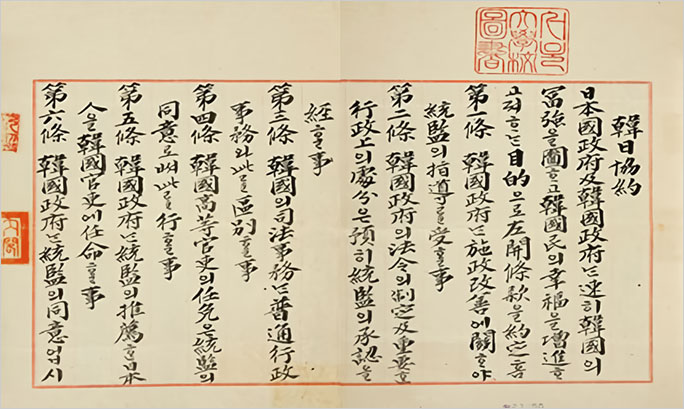 서울
大學校
圖書
韓日協約
日本國政府及韓國政府ᄂᆞᆫ速히韓國의
富强을圖ᄒᆞ고韓國民의幸福을增進ᄒᆞ
고져ᄒᆞᄂᆞᆫ目的으로左開條款을約定홈
第一條 韓國政府ᄂᆞᆫ施政改善에關ᄒᆞ야
統監의指導ᄅᆞᆯ受ᄒᆞᆯ事
第二條 韓國政府의法令의制定及重要ᄒᆞᆫ
行政上의處分은預히統監의承認을
經ᄒᆞᆯ事
第三條 韓國의司法事務ᄂᆞᆫ普通行政
事務와此ᄅᆞᆯ區別ᄒᆞᆯ事
第四條 韓國高等官吏의任免은統監의
同意로써此ᄅᆞᆯ行ᄒᆞᆯ事
第五條 韓國政府ᄂᆞᆫ統監의推薦ᄒᆞᆫ日本
人을韓國官吏에任命ᄒᆞᆯ事
第六條 韓國政府ᄂᆞᆫ統監의同意업시